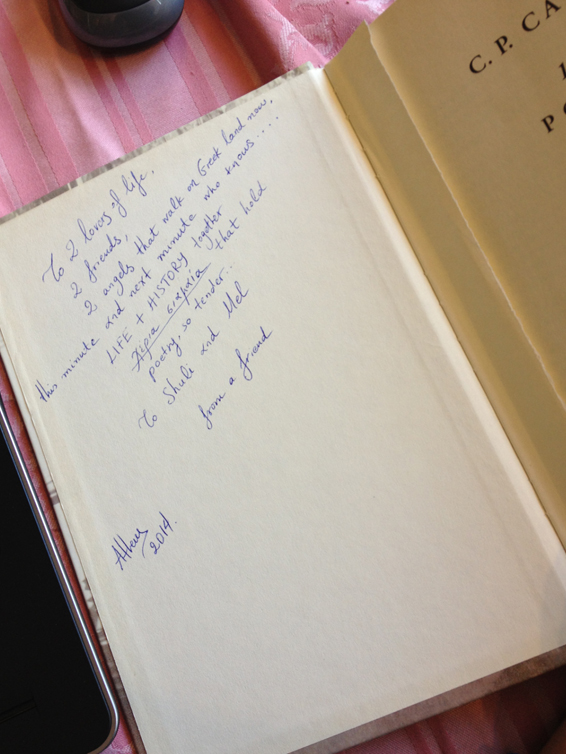 To 2 lovers of life.
2 friends,
2 angels that walk on Greek land now,
this minute and next minute who knows.....
LIFE + HISTORY together
that hold
poetry so tender...
To Shuli and Mel
from a friend
Athens
2014.
C. P. CA
P